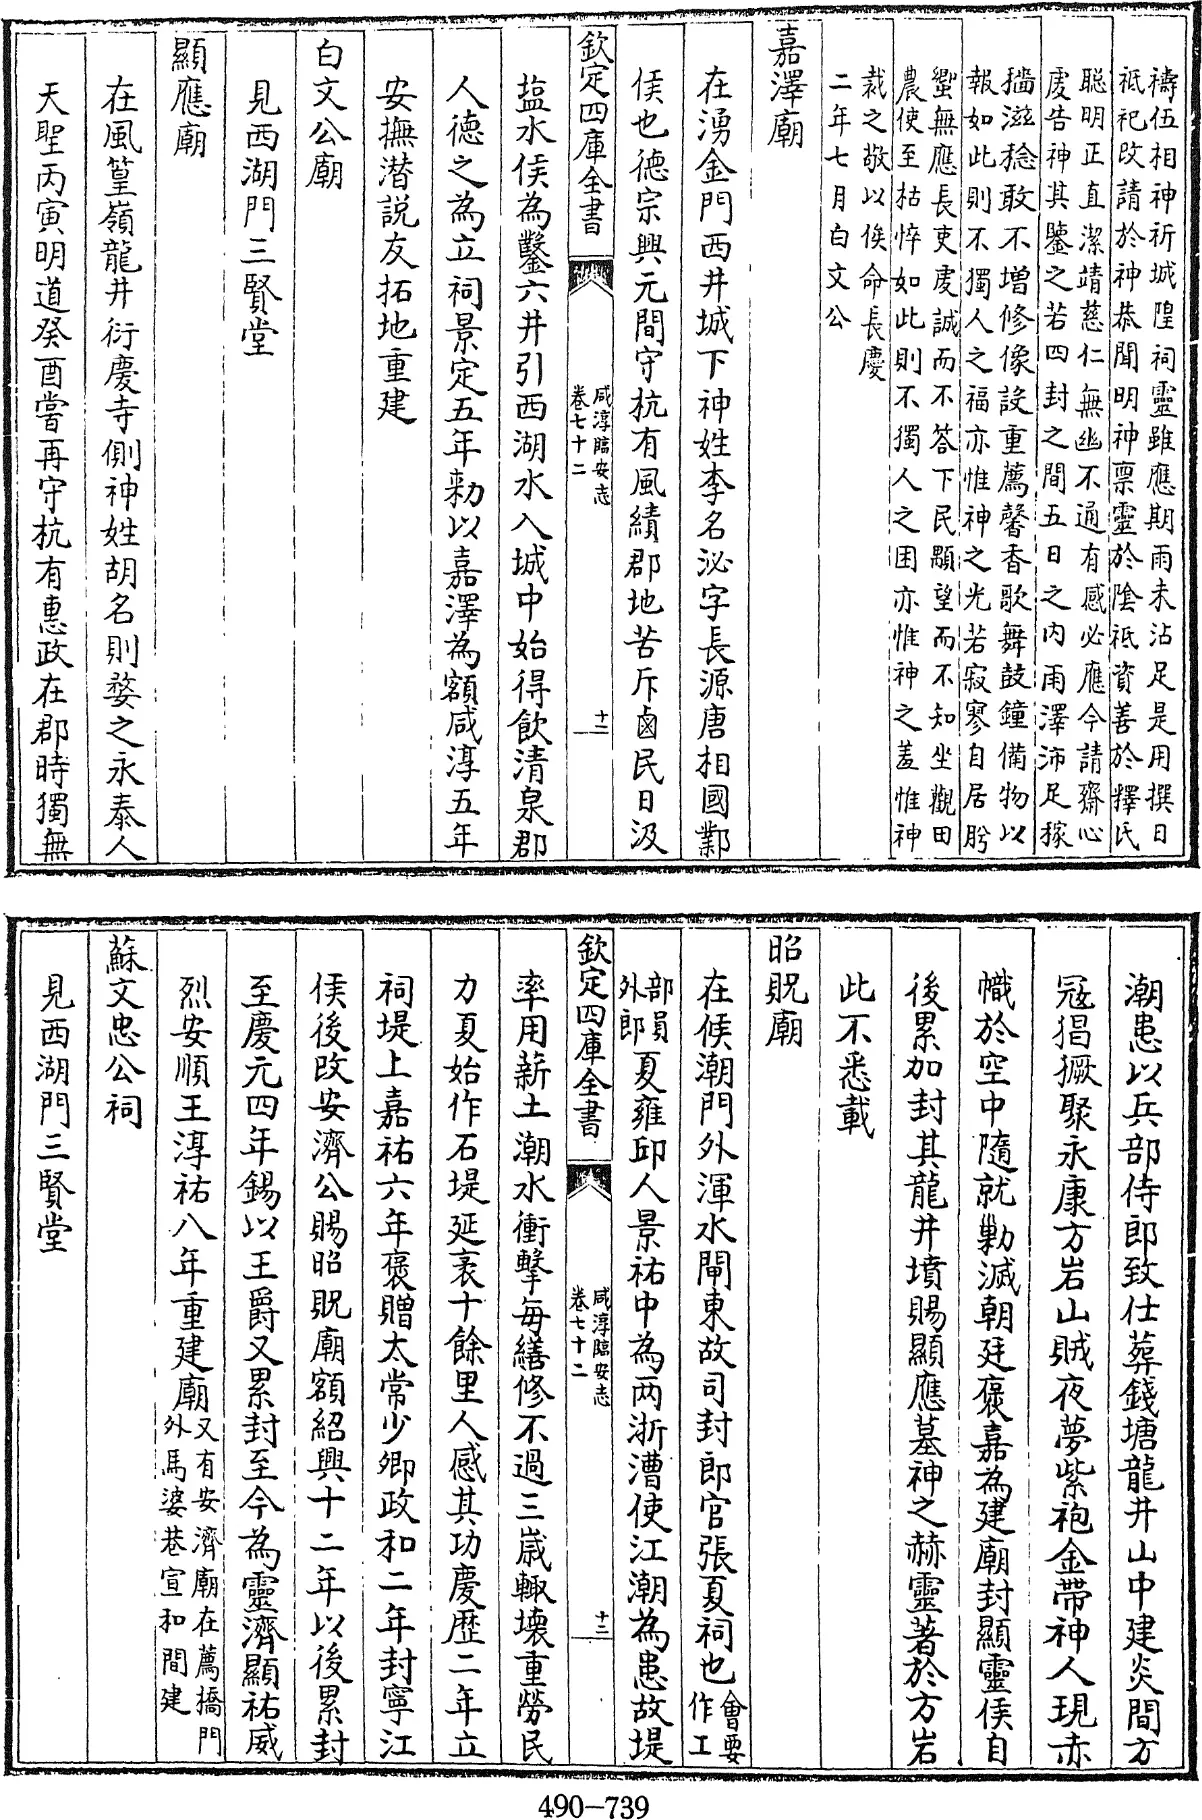 禱伍相神祈城隍祠靈雖應期雨未沾足是用撰日
祗祀改請於神恭聞明神禀靈於陰祗資善於釋氏
聰明正直潔靖慈仁無幽不通有感必應今請齋心
虔告神其鑒之若四封之間五日之内雨澤沛足稼
穡滋稔敢不增修像設重薦馨香歌舞鼓鐘備物以
報如此則不獨人之福亦惟神之光若寂寥自居肹
蠁無應長吏虔誠而不答下民顒望而不知坐觀田
農使至枯悴如此則不獨人之困亦惟神之羞惟神
裁之敬以俟命長慶
二年七月白文公
嘉澤廟
在湧金門西井城下神姓李名泌字長源唐相國鄴
侯也德宗興元間守杭有風績郡地苦斥鹵民日汲
欽定四庫全書
咸淳臨安志
卷七十二
十二
塩水侯為鑿六井引西湖水入城中始得飲清泉郡
人德之為立祠景定五年勑以嘉澤為額咸淳五年
安撫潜說友拓地重建
白文公廟
見西湖門三賢堂
顯應廟
在風篁嶺龍井衍慶寺側神姓胡名則婺之永泰人
天聖丙寅明道癸酉嘗再守杭有惠政在郡時獨無
潮患以兵部侍郎致仕葬錢塘龍井山中建炎間方
寇猖獗聚永康方岩山賊夜夢紫袍金帶神人現赤
幟於空中隨就勦滅朝廷褒嘉為建廟封顯靈侯自
後累加封其龍井墳賜顯應墓神之赫靈著於方岩
此不悉載
昭貺廟
在候潮門外渾水閘東故司封郎官張夏祠也會要作工
部員外郎夏雍邱人景祐中為兩浙漕使江潮為患故堤
欽定四庫全書
咸淳臨安志
卷七十二
十三
率用薪土潮水衝擊每繕修不過三歲輙壞重勞民
力夏始作石堤延袤十餘里人感其功慶歷二年立
祠堤上嘉祐六年褒贈太常少卿政和二年封寧江
侯後改安濟公賜昭貺廟額紹興十二年以後累封
至慶元四年錫以王爵又累封至今為靈濟顯祐威
烈安順王淳祐八年重建廟又有安濟廟在薦橋門外馬婆巷宣和間建
蘇文忠公祠
見西湖門三賢堂
490-739